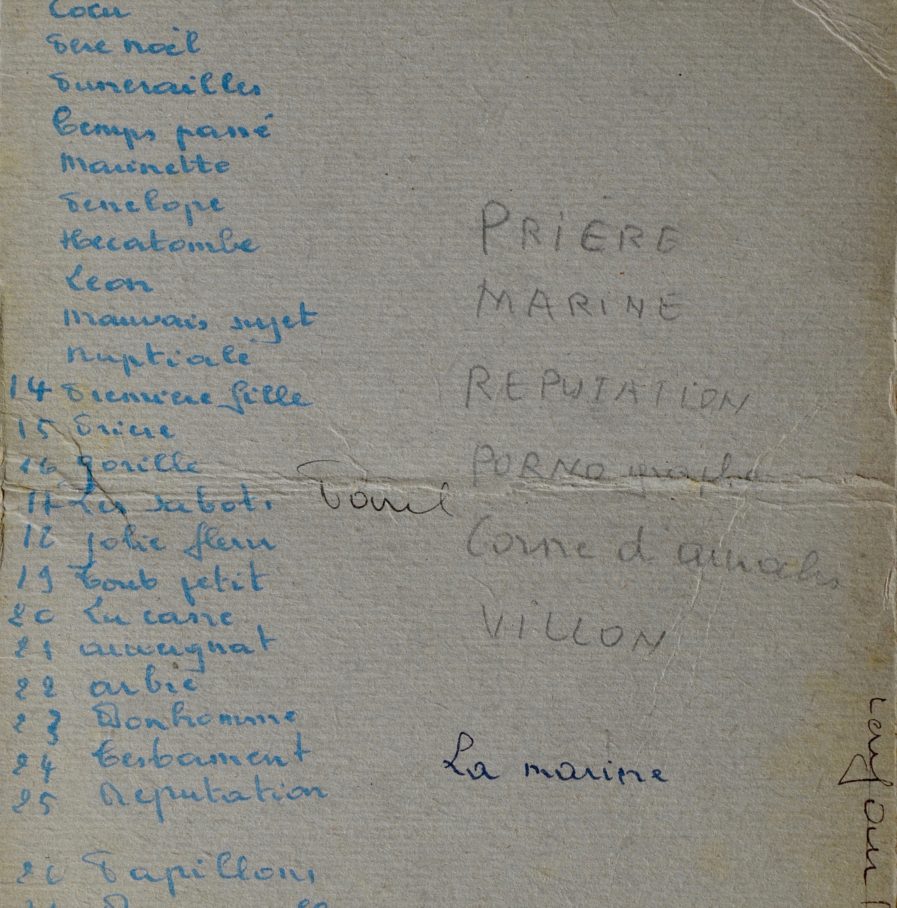 Cocu
Pere noël
Funerailles
temps passé
Marinette
Penelope
Hecatombe
PRIÈRE
Leon
MARINE
Mauvais sujet
Nuptiale
14 Premiere fille
REPUTATION
15 Priere
16 gorille
PORNO graphe
17 Les sabots
18 jolie fleur
Corne d'
19 tout petit
20 Lu casse
VILLON
21 auvergnat
22 arbre
23 Bonhomme
24 testament
La marine
25 Reputation
26 Papillons